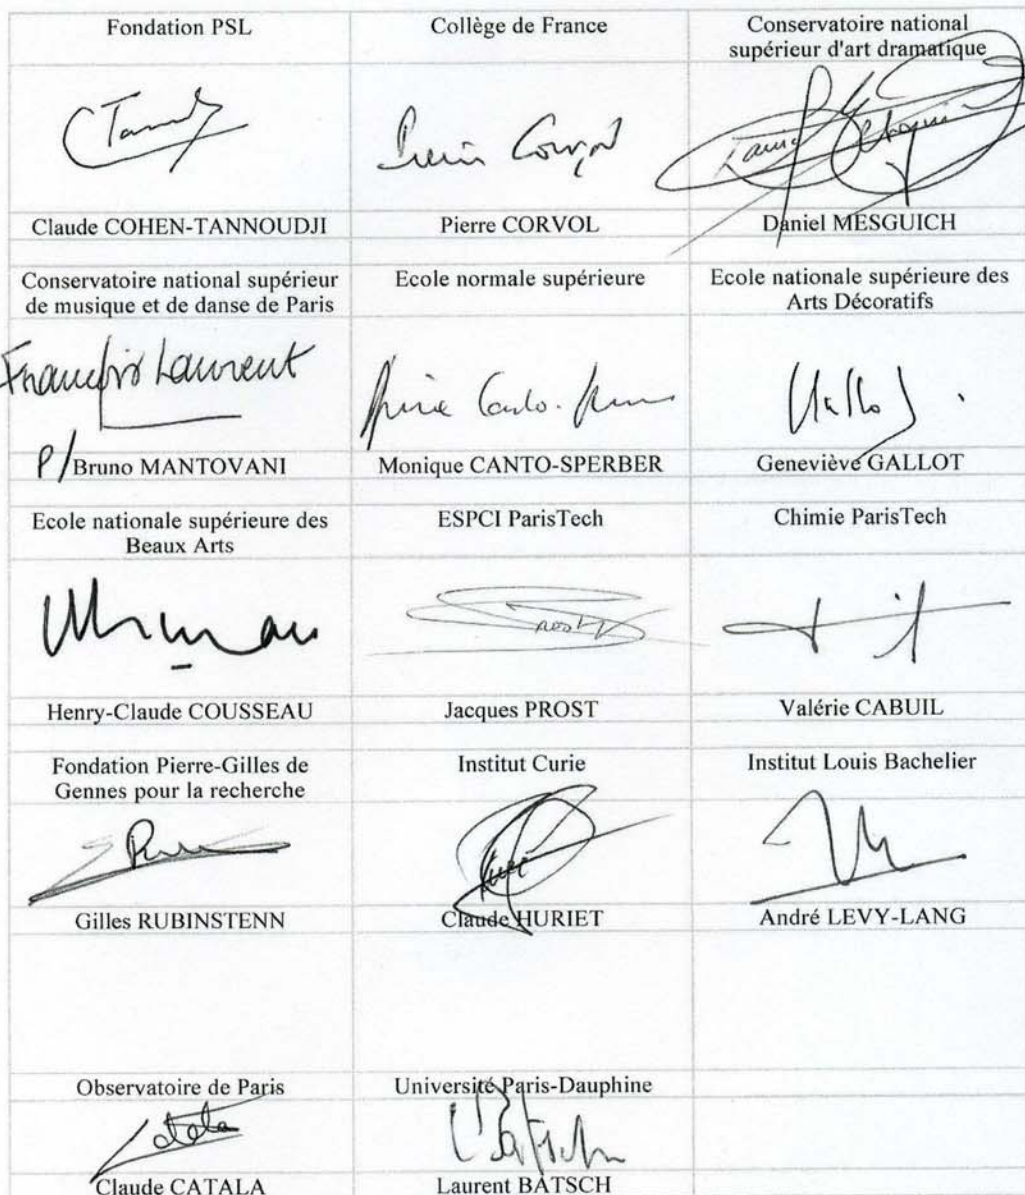 Fondation PSL
Collège de France
Conservatoire national
supérieur d'art dramatique
Claude COHEN-TANNOUDJI
Pierre CORVOL
Daniel MESGUICH
Conservatoire national supérieur
de musique et de danse de Paris
Ecole normale supérieure
Ecole nationale supérieure des
Arts Décoratifs
François Laurent
P/Bruno MANTOVANI
Monique CANTO-SPERBER
Geneviève GALLOT
Ecole nationale supérieure des
Beaux Arts
ESPCI ParisTech
Chimie ParisTech
Prost
Henry-Claude COUSSEAU
Jacques PROST
Valérie CABUIL
Fondation Pierre-Gilles de
Gennes pour la recherche
Institut Curie
Institut Louis Bachelier
Gilles RUBINSTENN
Claude HURIET
André LEVY-LANG
Observatoire de Paris
Université Paris-Dauphine
Claude CATALA
Laurent BATSCH